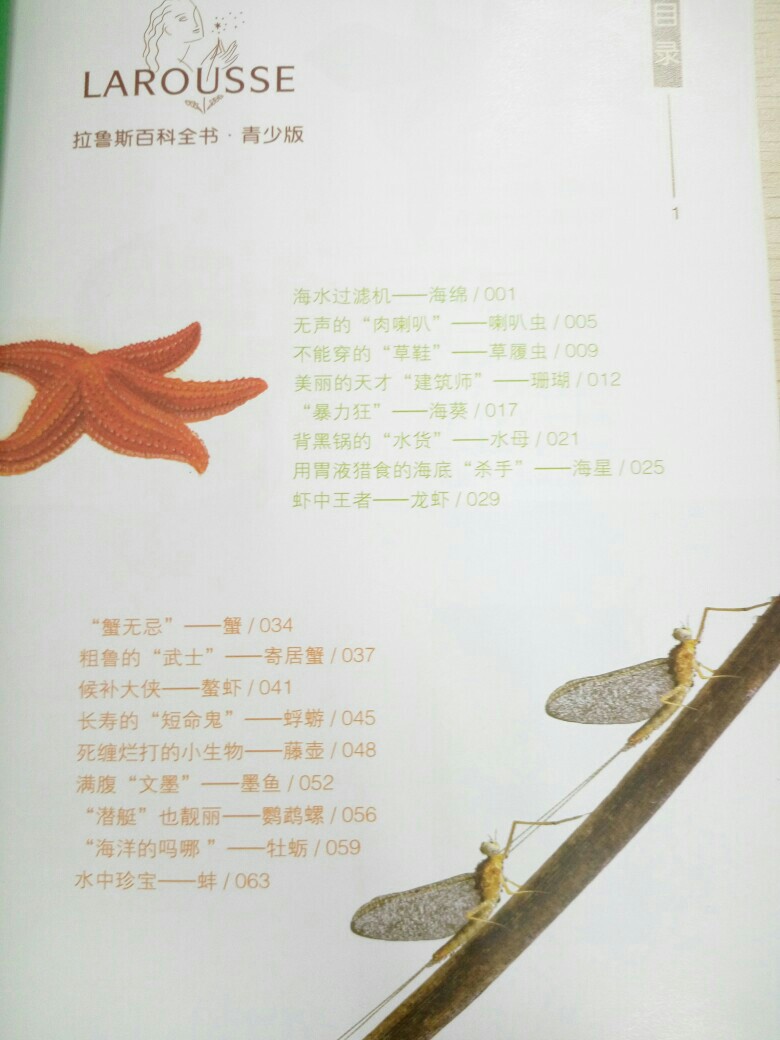 LAROUSSE
拉鲁斯百科全书·青少版
目录
1
海水过滤机——海绵 / 001
无声的“肉喇叭”——喇叭虫 / 005
不能穿的“草鞋”——草履虫 / 009
美丽的天才“建筑师”——珊瑚 / 012
“暴力狂”——海葵 / 017
背黑锅的“水货”——水母 / 021
用胃液猎食的海底“杀手”——海星 / 025
虾中王者——龙虾 / 029
“蟹无忌”——蟹 / 034
粗鲁的“武士”——寄居蟹 / 037
候补大侠——螯虾 / 041
长寿的“短命鬼”——蜉蝣 / 045
死缠烂打的小生物——藤壶 / 048
满腹“文墨”——墨鱼 / 052
“潜艇”也靓丽——鹦鹉螺 / 056
“海洋的吗哪 ”——牡蛎 / 059
水中珍宝——蚌 / 063